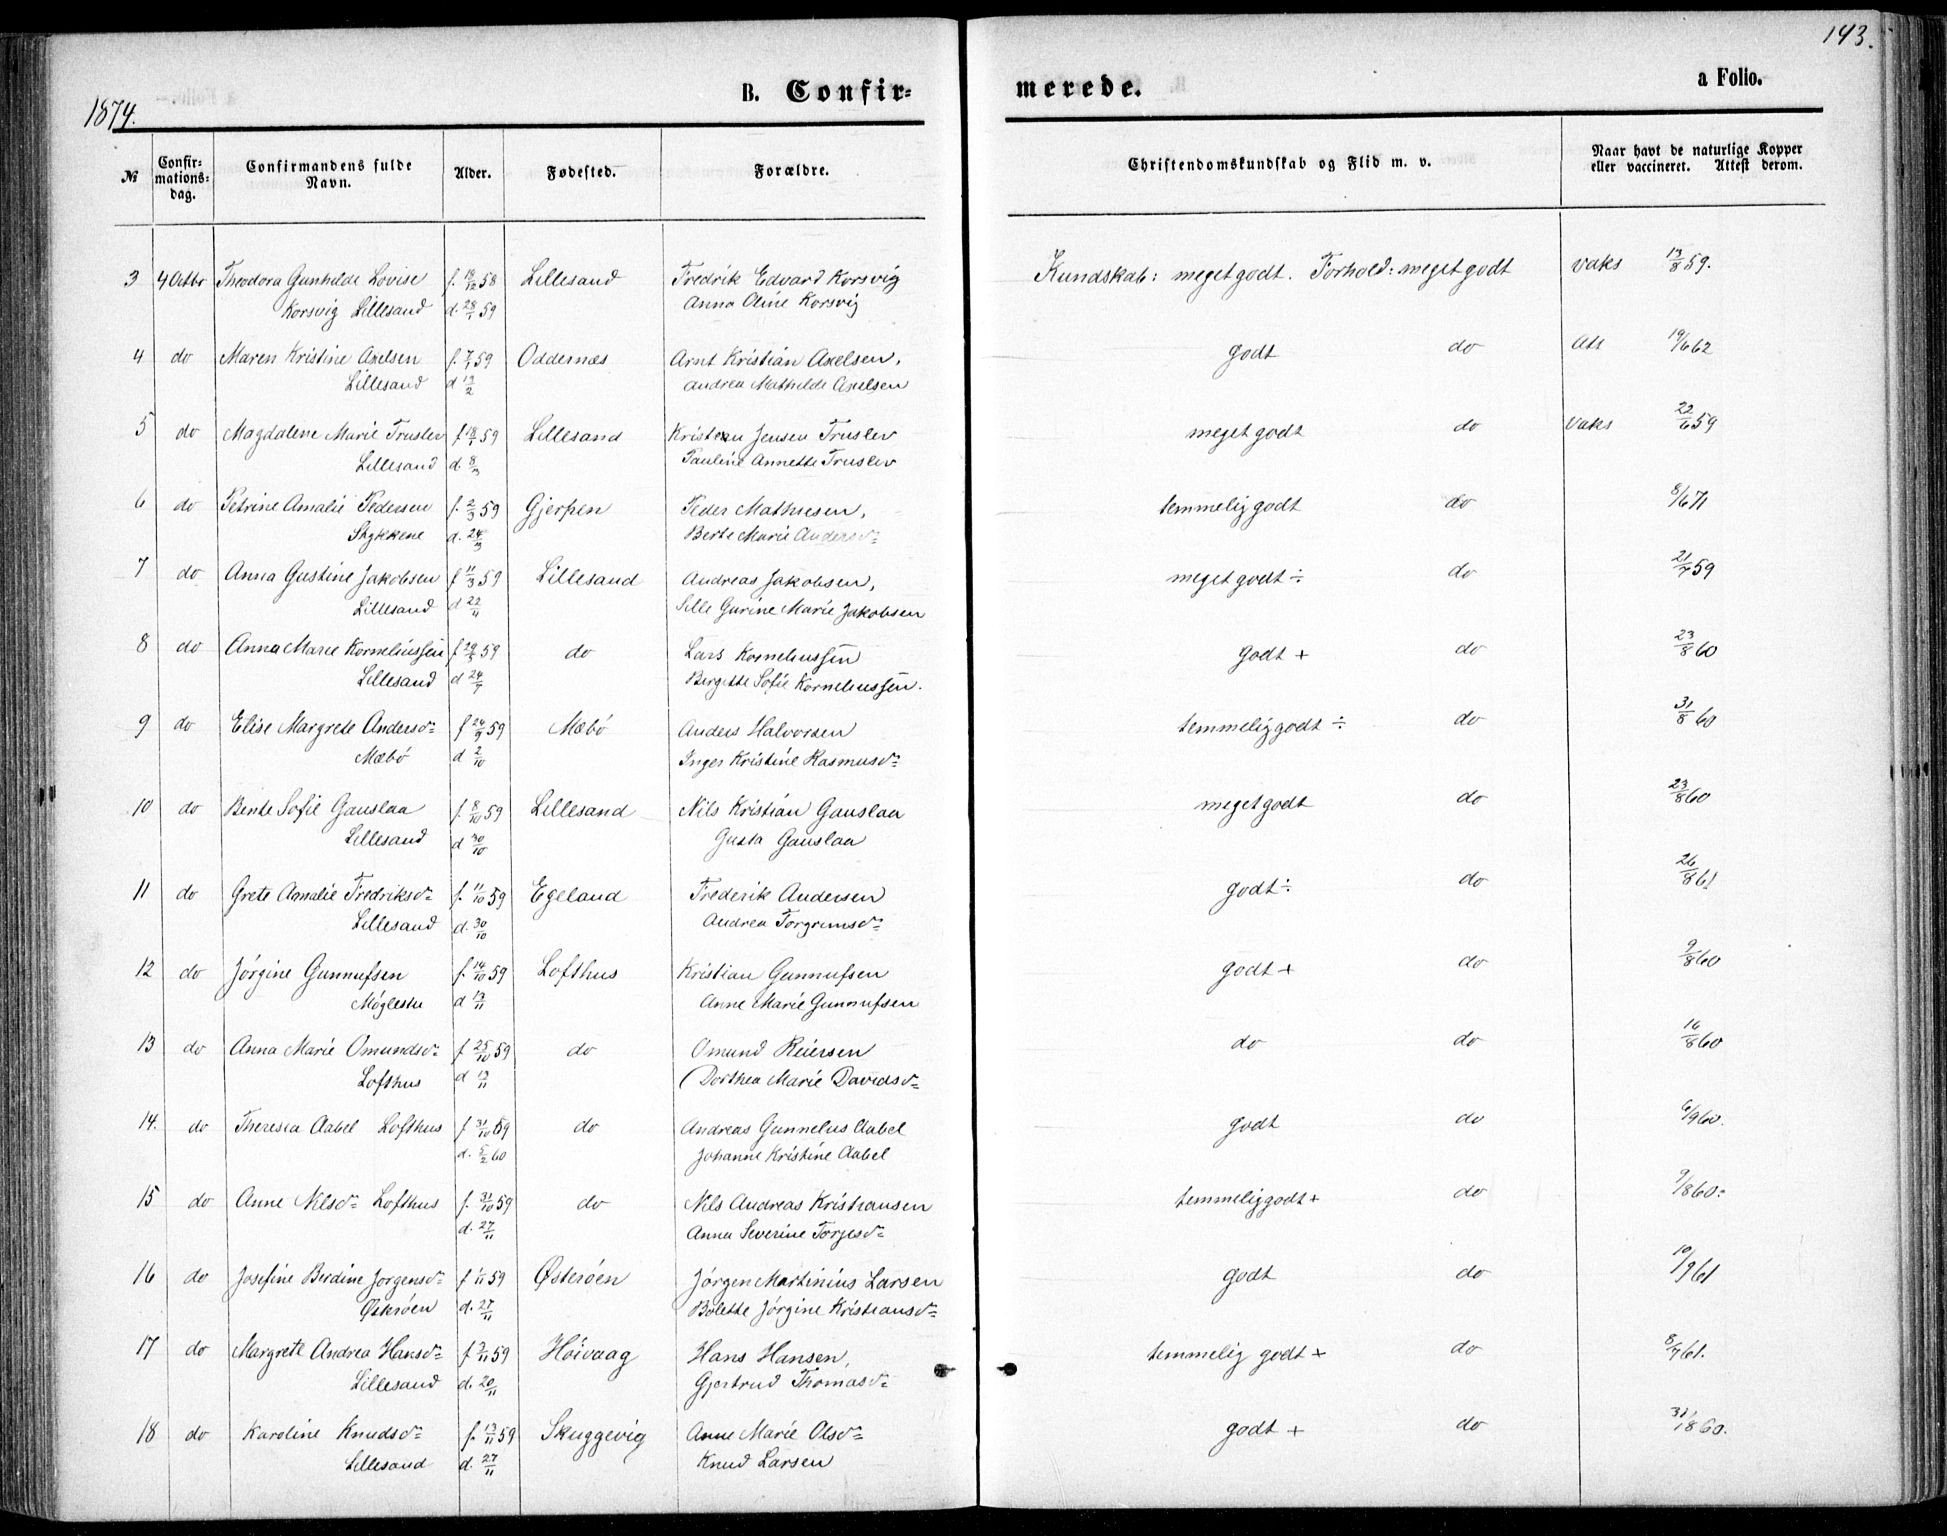 143.
1874.
B. Confir-
merede.
a Folio.
№
Confir-
mations-
dag.
Confirmandens fulde
Navn.
Alder.
Fødested.
Forældre.
Christendomskundskab og Flid m. v.
Naar havt de naturlige Kopper
eller vaccineret. Attest derom.
3 4 Octbr Theodora Gunhilde Lovise f. 18/12 58 Lillesand Fredrik Edvard Korsvig Kundskab: meget godt. Forhold: meget godt vaks 13/8 59.
Korsvig Lillesand d. 28/1 59 Anna Oline Korsvig
4 do Maren Kristine Axelsen f. 7/1 59 Oddernæs Arnt Kristian Axelsen, godt do att 19/6 62
Lillesand d 13/2 Andrea Mathilde Axelsen
5 do Magdalene Marie Truslev f 18/1 59 Lillesand Kristian Jensen Truslev meget godt do Vaks 22/6 59
Lillesand d. 8/3 Pauline Annette Truslev
6 do Petrine Amalie Pedersen f. 2/3 59 Gjerpen Peder Mathiesen, temmelig godt do 8/6 71
Stykkene d. 24/3 Berte Marie Andersdr
7 do Anna Gustine Jakobsen f 11/3 59 Lillesand Andreas Jakobsen, meget godt ÷ do 21/7 59
Lillesand d 22/11 Sille Gurine Marie Jakobsen
8 do Anna Marie Korneliussen f 29/5 59 do Lars Korneliussen godt + do 23/8 60
Lillesand d 24/7 Birgitte Sofie Korneliussen.
9 do Elise Margrete Andersdr f 24/9 59 Mæbø Anders Halvorsen temmelig godt ÷ do 31/8 60
Mæbø d 2/10 Inger Kristine Rasmusdr
10 do Bente Sofie Gauslaa f. 8/10 59 Lillesand Nils Kristian Gauslaa meget godt do 23/8 60
Lillesand d 30/10 Gusta Gauslaa
11 do Grete Amalie Fredriksdr f. 11/10 59 Egeland Frederik Andersen godt ÷ do 26/8 61
Lillesand d. 30/10 Andrea Torgrimsdr
12 do Jørgine Gunnufsen f. 14/10 59 Lofthus Kristian Gunnufsen godt + do 9/8 60
Møglestu d 13/11 Anne Marie Gunnufsen
13 do Anna Marie Omundsdr f 25/10 59 do Omund Reiersen do do 16/8 60
Lofthus d 13/11 Dorthea Marie Davidsdr
14. do Theresia Aabel Lofthus f 31/10 59 do Andreas Gunnelus Aabel godt do 6/9 60.
d. 5/2 60 Johanne Kristine Aabel
15 do Anne Nilsdr Lofthus f. 31/10 59 do Nils Andreas Kristiansen temmelig godt + do 9/8 60.
d. 27/11 Anna Severine Torjesdr
16 do Josefine Berdine Jørgensdr f 1/11 59 Østerøen Jørgen Martinius Larsen godt do 19/9 61
Østerøen d. 27/11 Bolette Jørgine Kristiansdr
17 do Margrete Andrea Hansdr f 3/11 59 Høivaag Hans Hansen, temmelig godt + do 8/7 61.
Lillesand d. 20/11 Gjertrud Thomasdr
18 do Karoline Knudsdr f. 13/11 59 Skuggevig Anne Marie Olsdr godt + do 31/8 60.
Lillesand d. 27/11 Knud Larsen